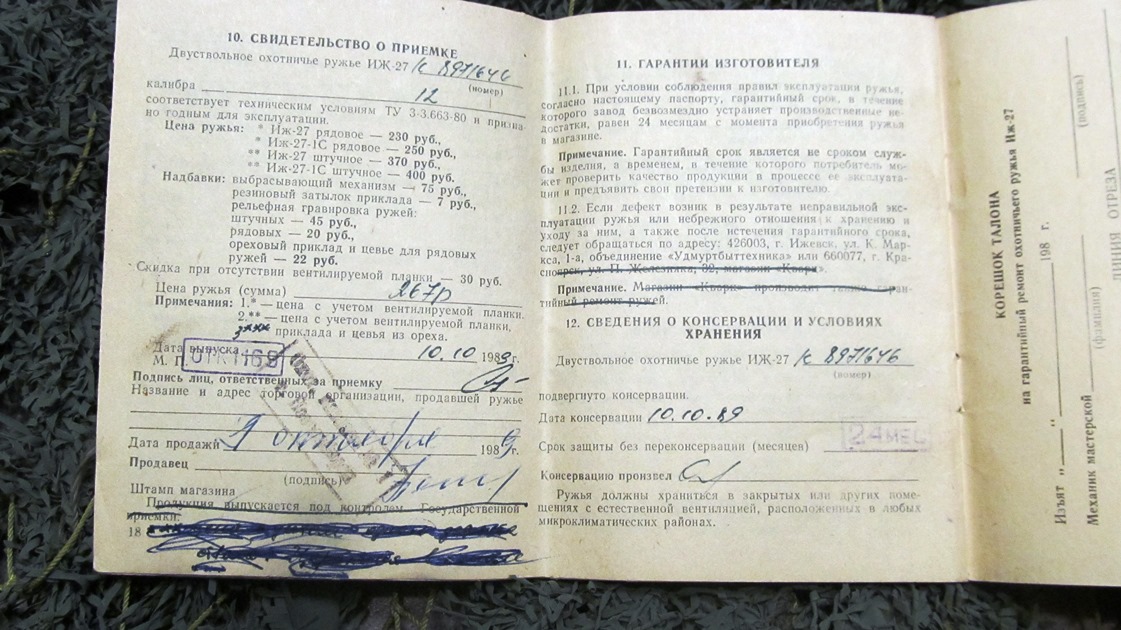 10. СВИДЕТЕЛЬСТВО О ПРИЕМКЕ
Двуствольное охотничье ружье ИЖ-27 К 8971646
(номер)
калибра 12
соответствует техническим условиям ТУ 3-3.663-80 и призна-
но годным для эксплуатации.
Цена ружья: * Иж-27 рядовое — 230 руб.,
* Иж-27-1С рядовое — 250 руб.,
** Иж-27 штучное — 370 руб.,
** Иж-27-1С штучное — 400 руб.
Надбавки: выбрасывающий механизм — 75 руб.,
резиновый затылок приклада — 7 руб.,
рельефная гравировка ружей:
штучных — 45 руб.,
рядовых — 20 руб.,
ореховый приклад и цевье для рядовых
ружей — 22 руб.
Скидка при отсутствии вентилируемой планки — 30 руб.
Цена ружья (сумма) 267р
Примечания: 1.* — цена с учетом вентилируемой планки.
2.** — цена с учетом вентилируемой планки,
приклада и цевья из ореха.
Дата выпуска 10.10 1989г.
М. П.
ОТК 1169
Подпись лиц, ответственных за приемку
Название и адрес торговой организации, продавшей ружье
Дата продажи октября 1989г.
Продавец
(подпись)
Штамп магазина
Продукция выпускается под контролем Государственной
приемки.
18
11. ГАРАНТИИ ИЗГОТОВИТЕЛЯ
11.1. При условии соблюдения правил эксплуатации ружья,
согласно настоящему паспорту, гарантийный срок, в течение
которого завод безвозмездно устраняет производственные не-
достатки, равен 24 месяцам с момента приобретения ружья
в магазине.
Примечание. Гарантийный срок является не сроком служ-
бы изделия, а временем, в течение которого потребитель мо-
жет проверить качество продукции в процессе ее эксплуата-
ции и предъявить свои претензии к изготовителю.
11.2. Если дефект возник в результате неправильной экс-
плуатации ружья или небрежного отношения к хранению и
уходу за ним, а также после истечения гарантийного срока,
следует обращаться по адресу: 426003, г. Ижевск, ул. К. Мар-
кса, 1-а, объединение «Удмуртбыттехника» или 660077, г. Кра-
сноярск, ул. П. Железняка, 32, магазин «Кварц».
Примечание. Магазин «Кварц» производит только гаран-
тийный ремонт ружей.
12. СВЕДЕНИЯ О КОНСЕРВАЦИИ И УСЛОВИЯХ
ХРАНЕНИЯ
Двуствольное охотничье ружье ИЖ-27 К 8971646
(номер)
подвергнуто консервации.
Дата консервации 10.10.89
Срок защиты без переконсервации (месяцев) 24 МЕС
Консервацию произвел
Ружья должны храниться в закрытых или других поме-
щениях с естественной вентиляцией, расположенных в любых
микроклиматических районах.
КОРЕШОК ТАЛОНА
на гарантийный ремонт охотничьего ружья Иж-27
Изъят „ — “ 198 г.
Механик мастерской
(фамилия)
(подпись)
ЛИНИЯ ОТРЕЗА